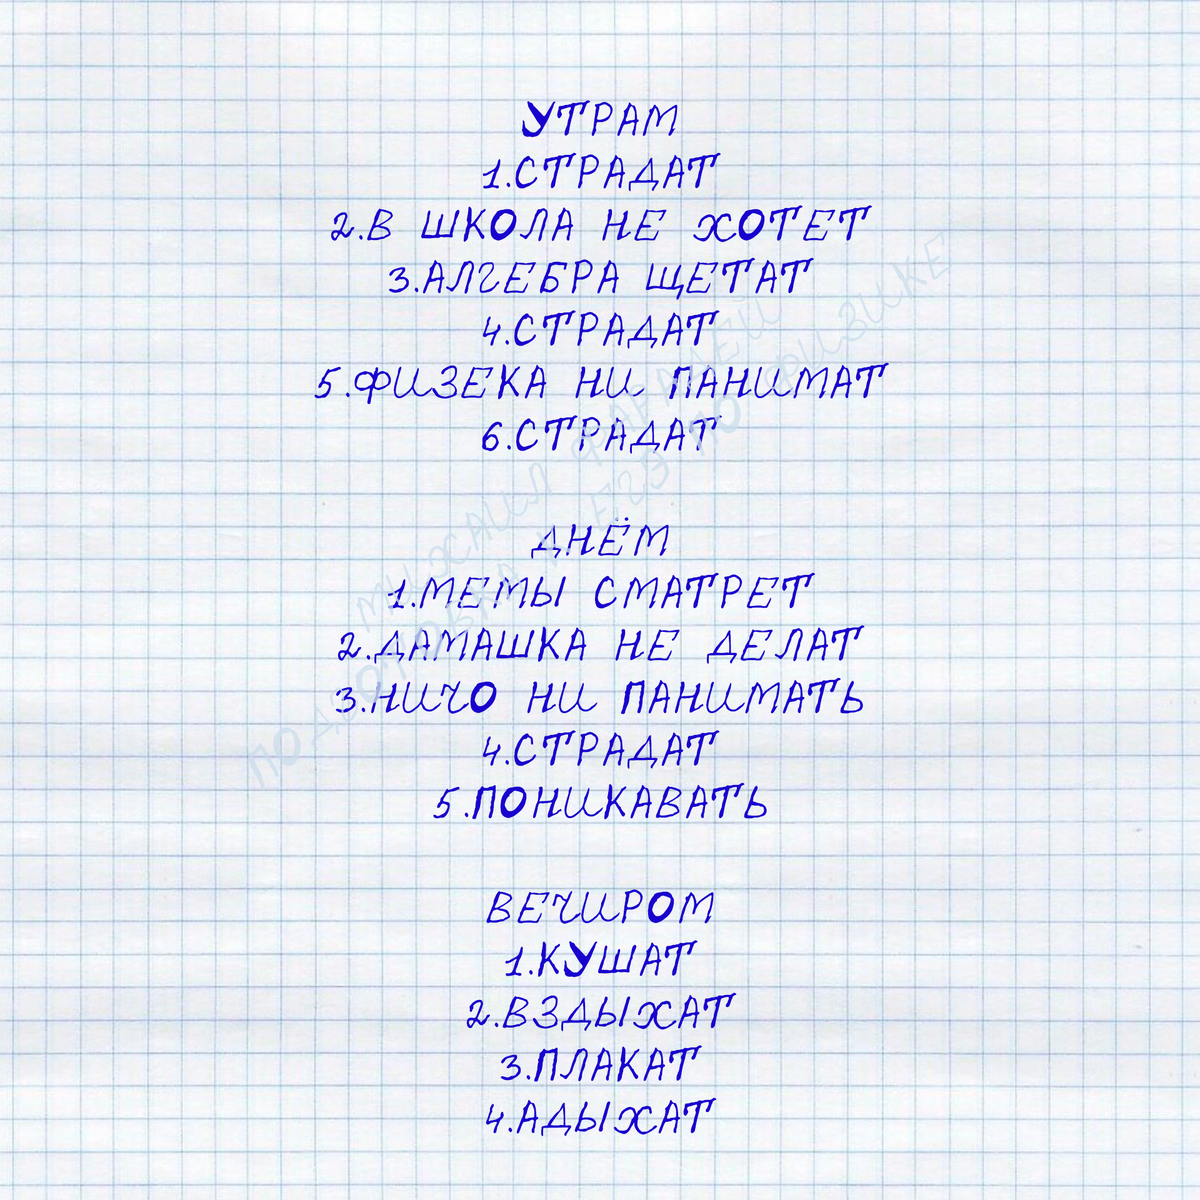 УТРАМ
1.СТРАДАТ
2.В ШКОЛА НЕ ХОТЕТ
3.АЛГЕБРА ЩЕТАТ
4.СТРАДАТ
5.ФИЗЕКА НИ ПАНИМАТ
6.СТРАДАТ
ДНЁМ
1.МЕМЫ СМАТРЕТ
2.ДАМАШКА НЕ ДЕЛАТ
3.НИЧО НИ ПАНИМАТЬ
4.СТРАДАТ
5.ПОНИКАВАТЬ
ВЕЧИРОМ
1.КУШАТ
2.ВЗДЫХАТ
3.ПЛАКАТ
4.АДЫХАТ
МИХАИЛ
ПОДГОТОВКА К ЕГЭ ПО ФИЗИКЕ